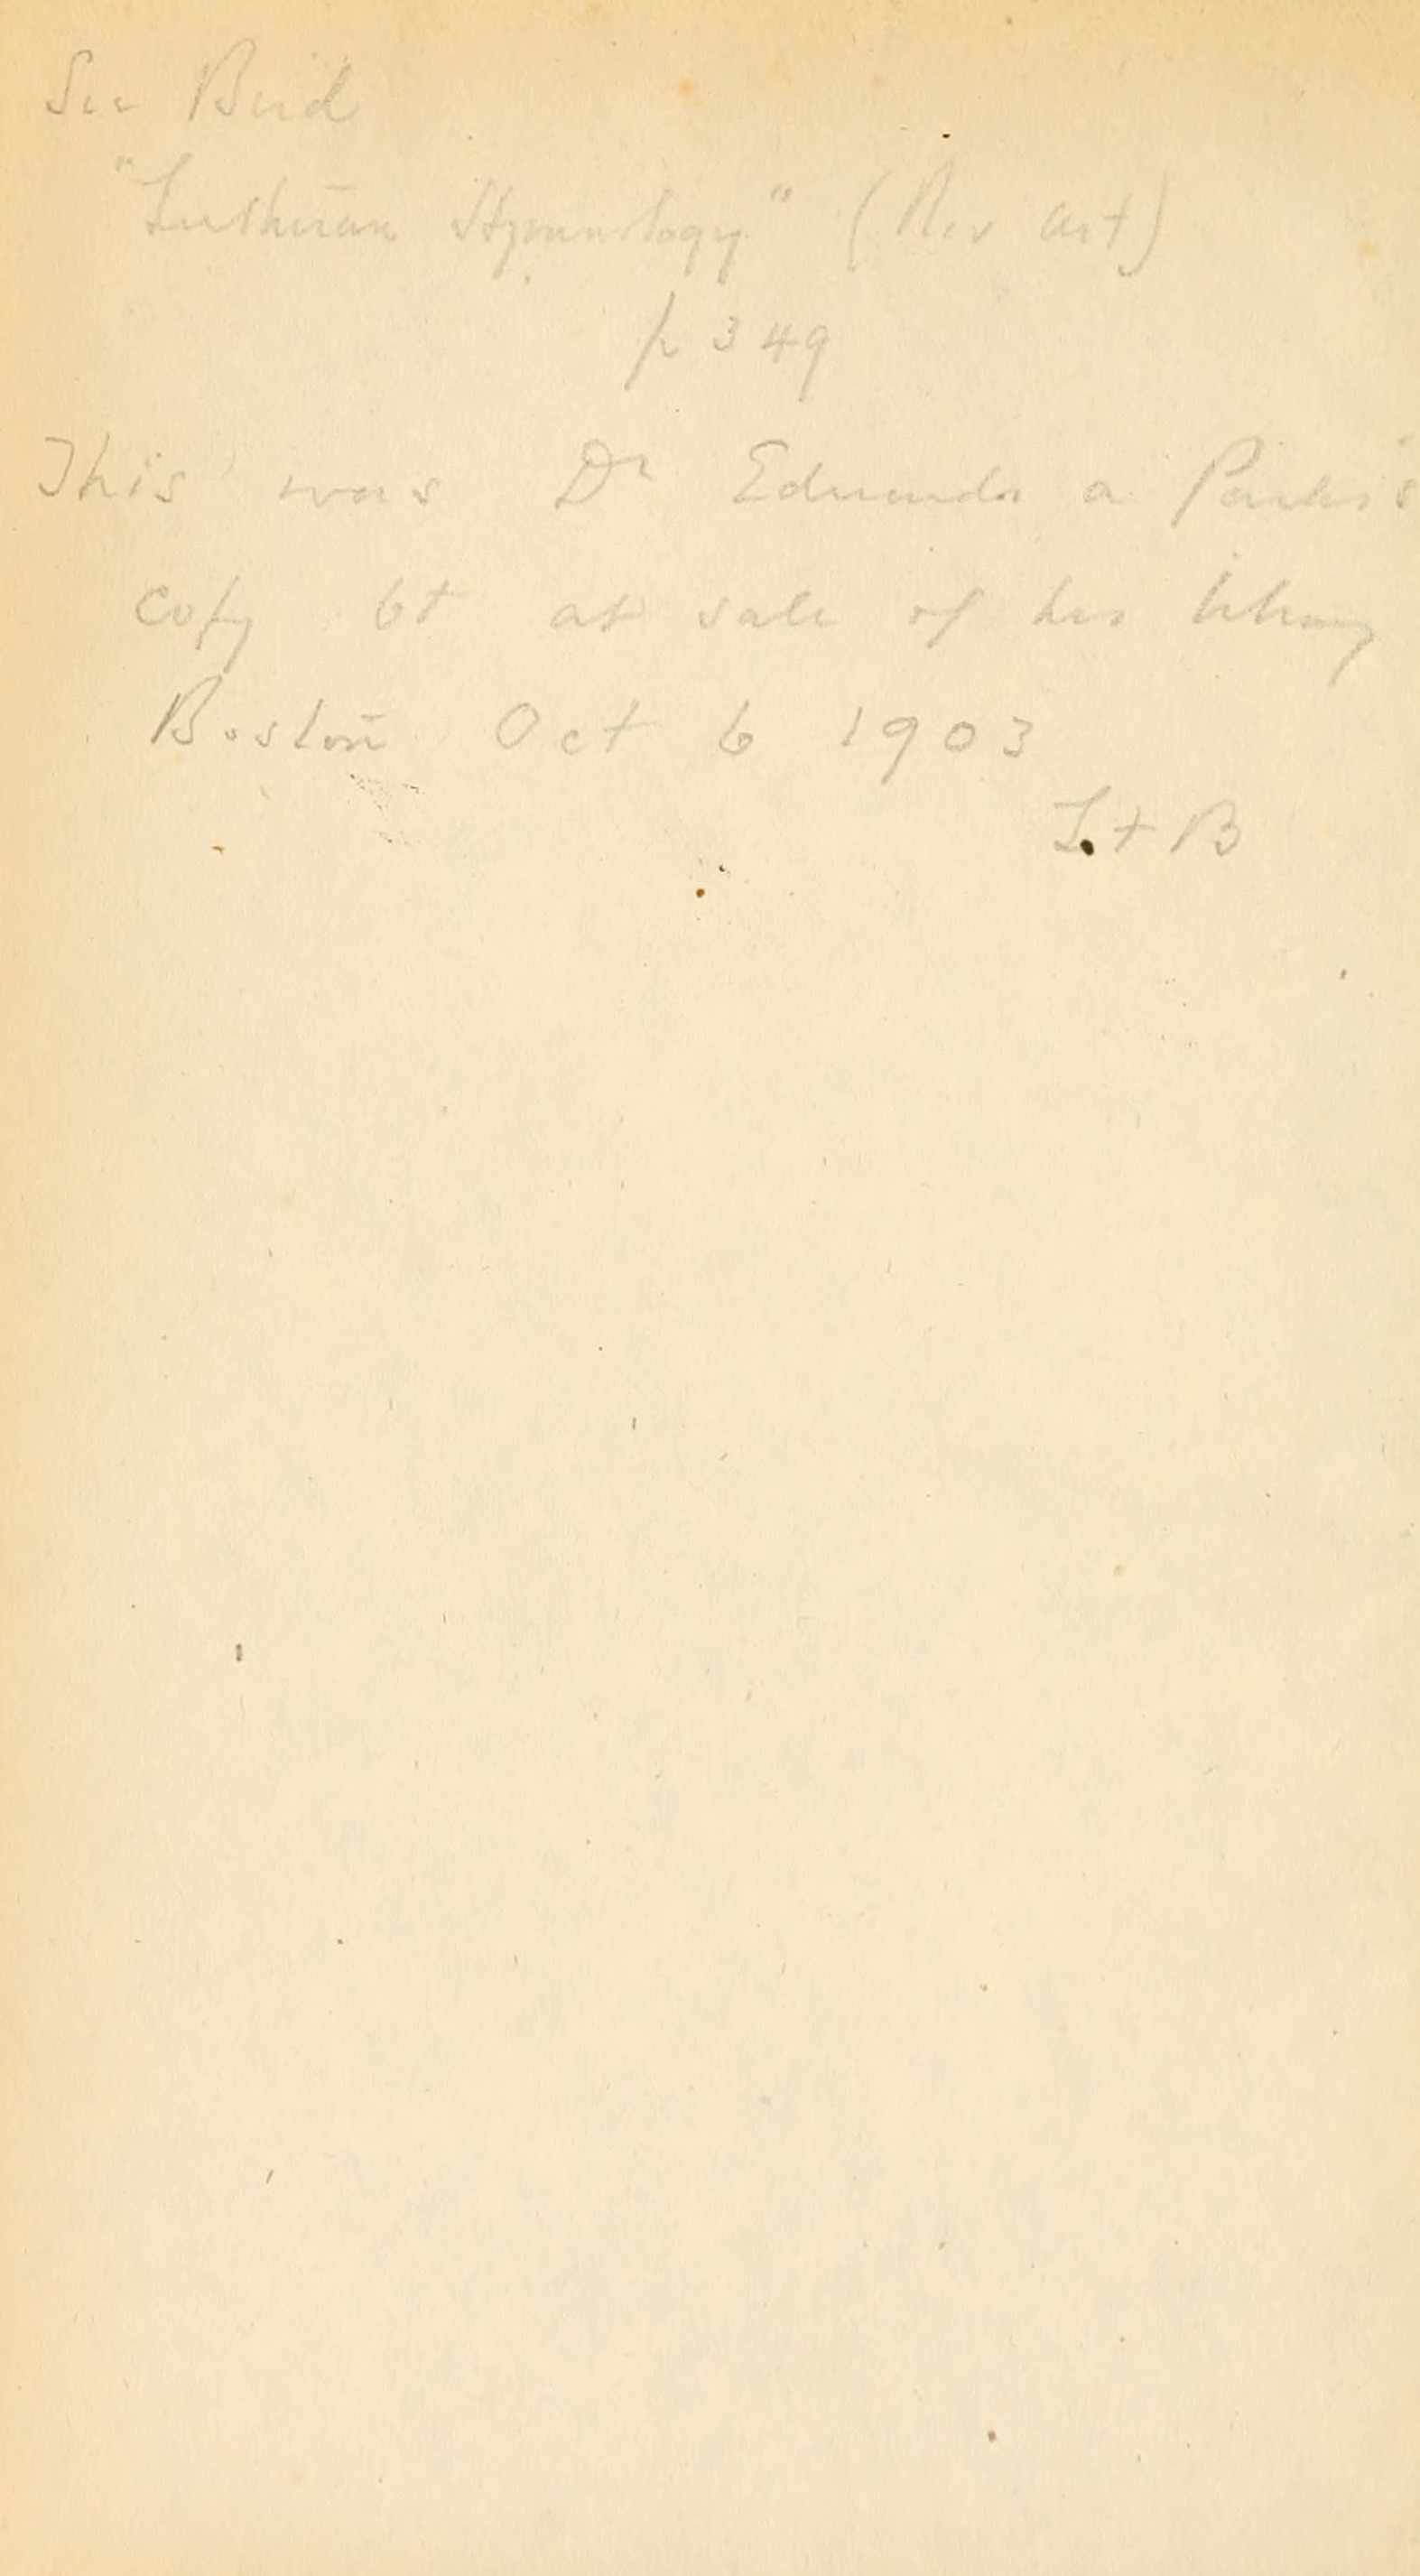 See Bird
"Lutheran Hymnology" (Rev art)
p 349
This was Dr Edwards a Park's
copy bt at sale of his library
Boston Oct 6 1903
L + B